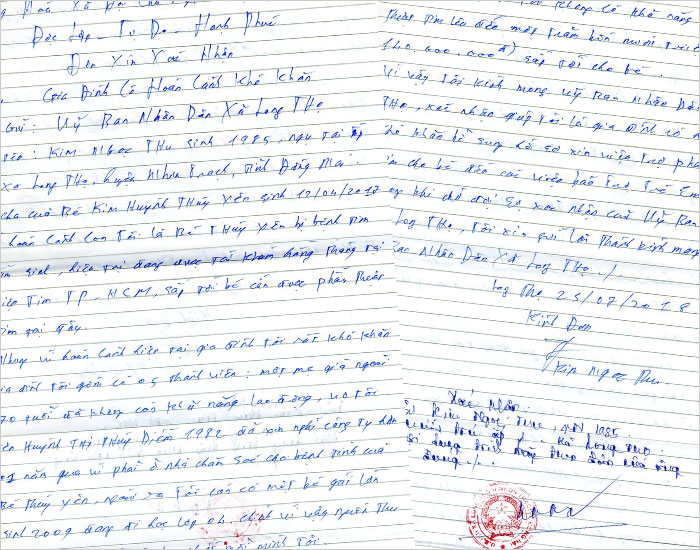 Độc Lập - Tự Do - Hạnh Phúc
Đơn Xin Xác Nhận
Gia Đình Có Hoàn Cảnh Khó Khăn
Gửi: Uỷ Ban Nhân Dân Xã Long Thọ
tên: Kim Ngọc Thu sinh 1985, ngụ tại ấp
xã Long Thọ, huyện Nhơn Trạch, tỉnh Đồng Nai.
cha của Bé Kim Huỳnh Thuý Yên sinh 12/04/2017
hoàn cảnh con tôi là Bé Thuý Yên bị bệnh tim
sinh, hiện tại đang được tái khám hàng tháng tại
viện Tim TP-HCM, sắp tới bé cần được phẫu thuật
tim tại đây.
Nhưng vì hoàn cảnh hiện tại gia đình tôi rất khó khăn
gia đình tôi gồm có 05 thành viên: một mẹ già ngoài
70 tuổi đã không còn khả năng lao động, vợ tôi
tên Huỳnh Thị Thuý Diễm 1982 đã xin nghỉ công ty hơn
01 năm qua vì phải ở nhà chăm sóc cho bệnh tình của
Bé Thuý Yên, ngoài ra tôi còn có một bé gái lớn
sinh 2009 đang đi học lớp 04. chính vì vậy nguồn thu
mình tôi.
không có khả năng
140.000.000đ) sắp tới cho bé.
Vì vậy tôi kính mong Uỷ Ban Nhân Dân
Thọ, xác nhận giúp tôi là gia đình có
bổ sung hồ sơ xin viện trợ
cho bé đến các viện bảo trợ trẻ em
khi chờ đợi sự xác nhận của Uỷ Ban
Long Thọ, Tôi xin gửi lời thành kính mong
Ban Nhân Dân Xã Long Thọ./.
Long Thọ 25/07/2018
Kính Đơn
Kim Ngọc Thu
Xác nhận
Kim Ngọc Thu, 1985
xã Long Thọ